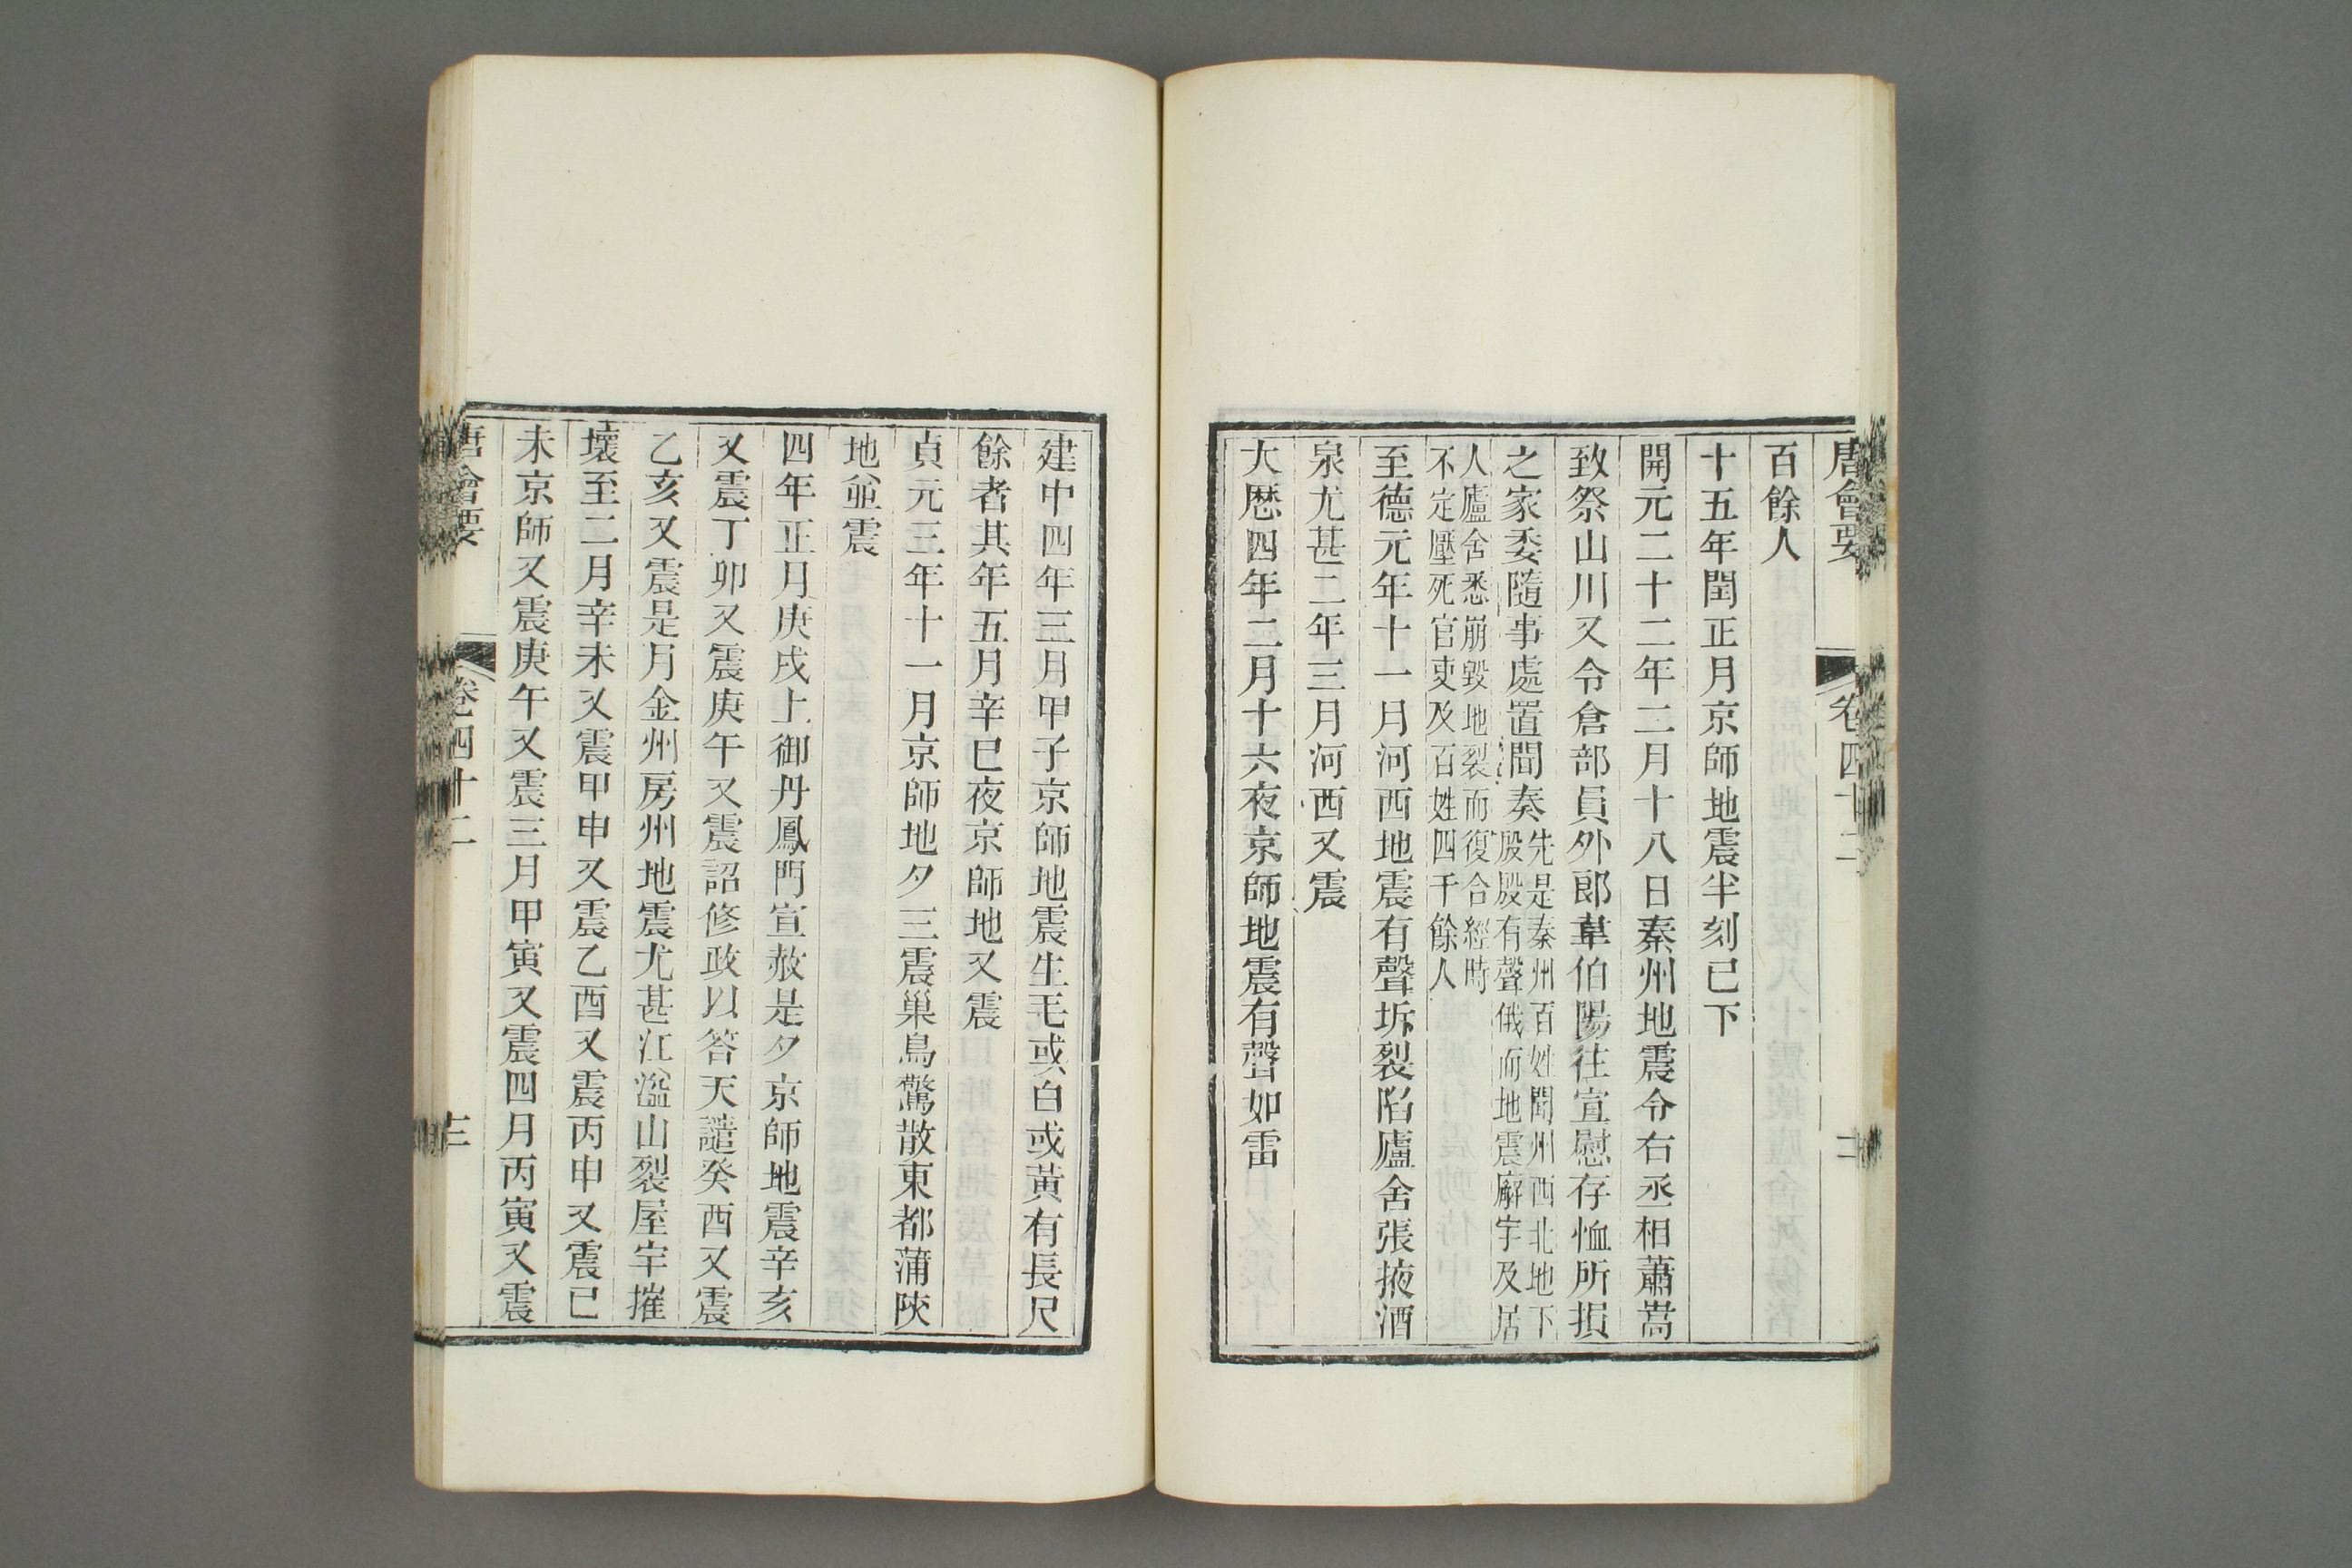 唐會要 卷四十二 二
百餘人
十五年閏正月京師地震半刻已下
開元二十二年二月十八日秦州地震令右丞相蕭嵩
致祭山川又令倉部員外郎韋伯陽往宣慰存恤所損
之家委隨事處置聞奏先是秦州百姓聞州西北地下
殷殷有聲俄而地震廨宇及居
人廬舍悉崩毀地裂而復合經時
不定壓死官吏及百姓四千餘人
至德元年十一月河西地震有聲坼裂陷廬舍張掖酒
泉尤甚二年三月河西又震
大歷四年二月十六夜京師地震有聲如雷
建中四年三月甲子京師地震生毛或白或黃有長尺
餘者其年五月辛巳夜京師地又震
貞元三年十一月京師地夕三震巢鳥驚散東都蒲陝
地並震
四年正月庚戌上御丹鳳門宣赦是夕京師地震辛亥
又震丁卯又震庚午又震詔修政以答天譴癸酉又震
乙亥又震是月金州房州地震尤甚江溢山裂屋宇摧
壞至二月辛未又震甲申又震乙酉又震丙申又震已
未京師又震庚午又震三月甲寅又震四月丙寅又震
唐會要 卷四十二 三